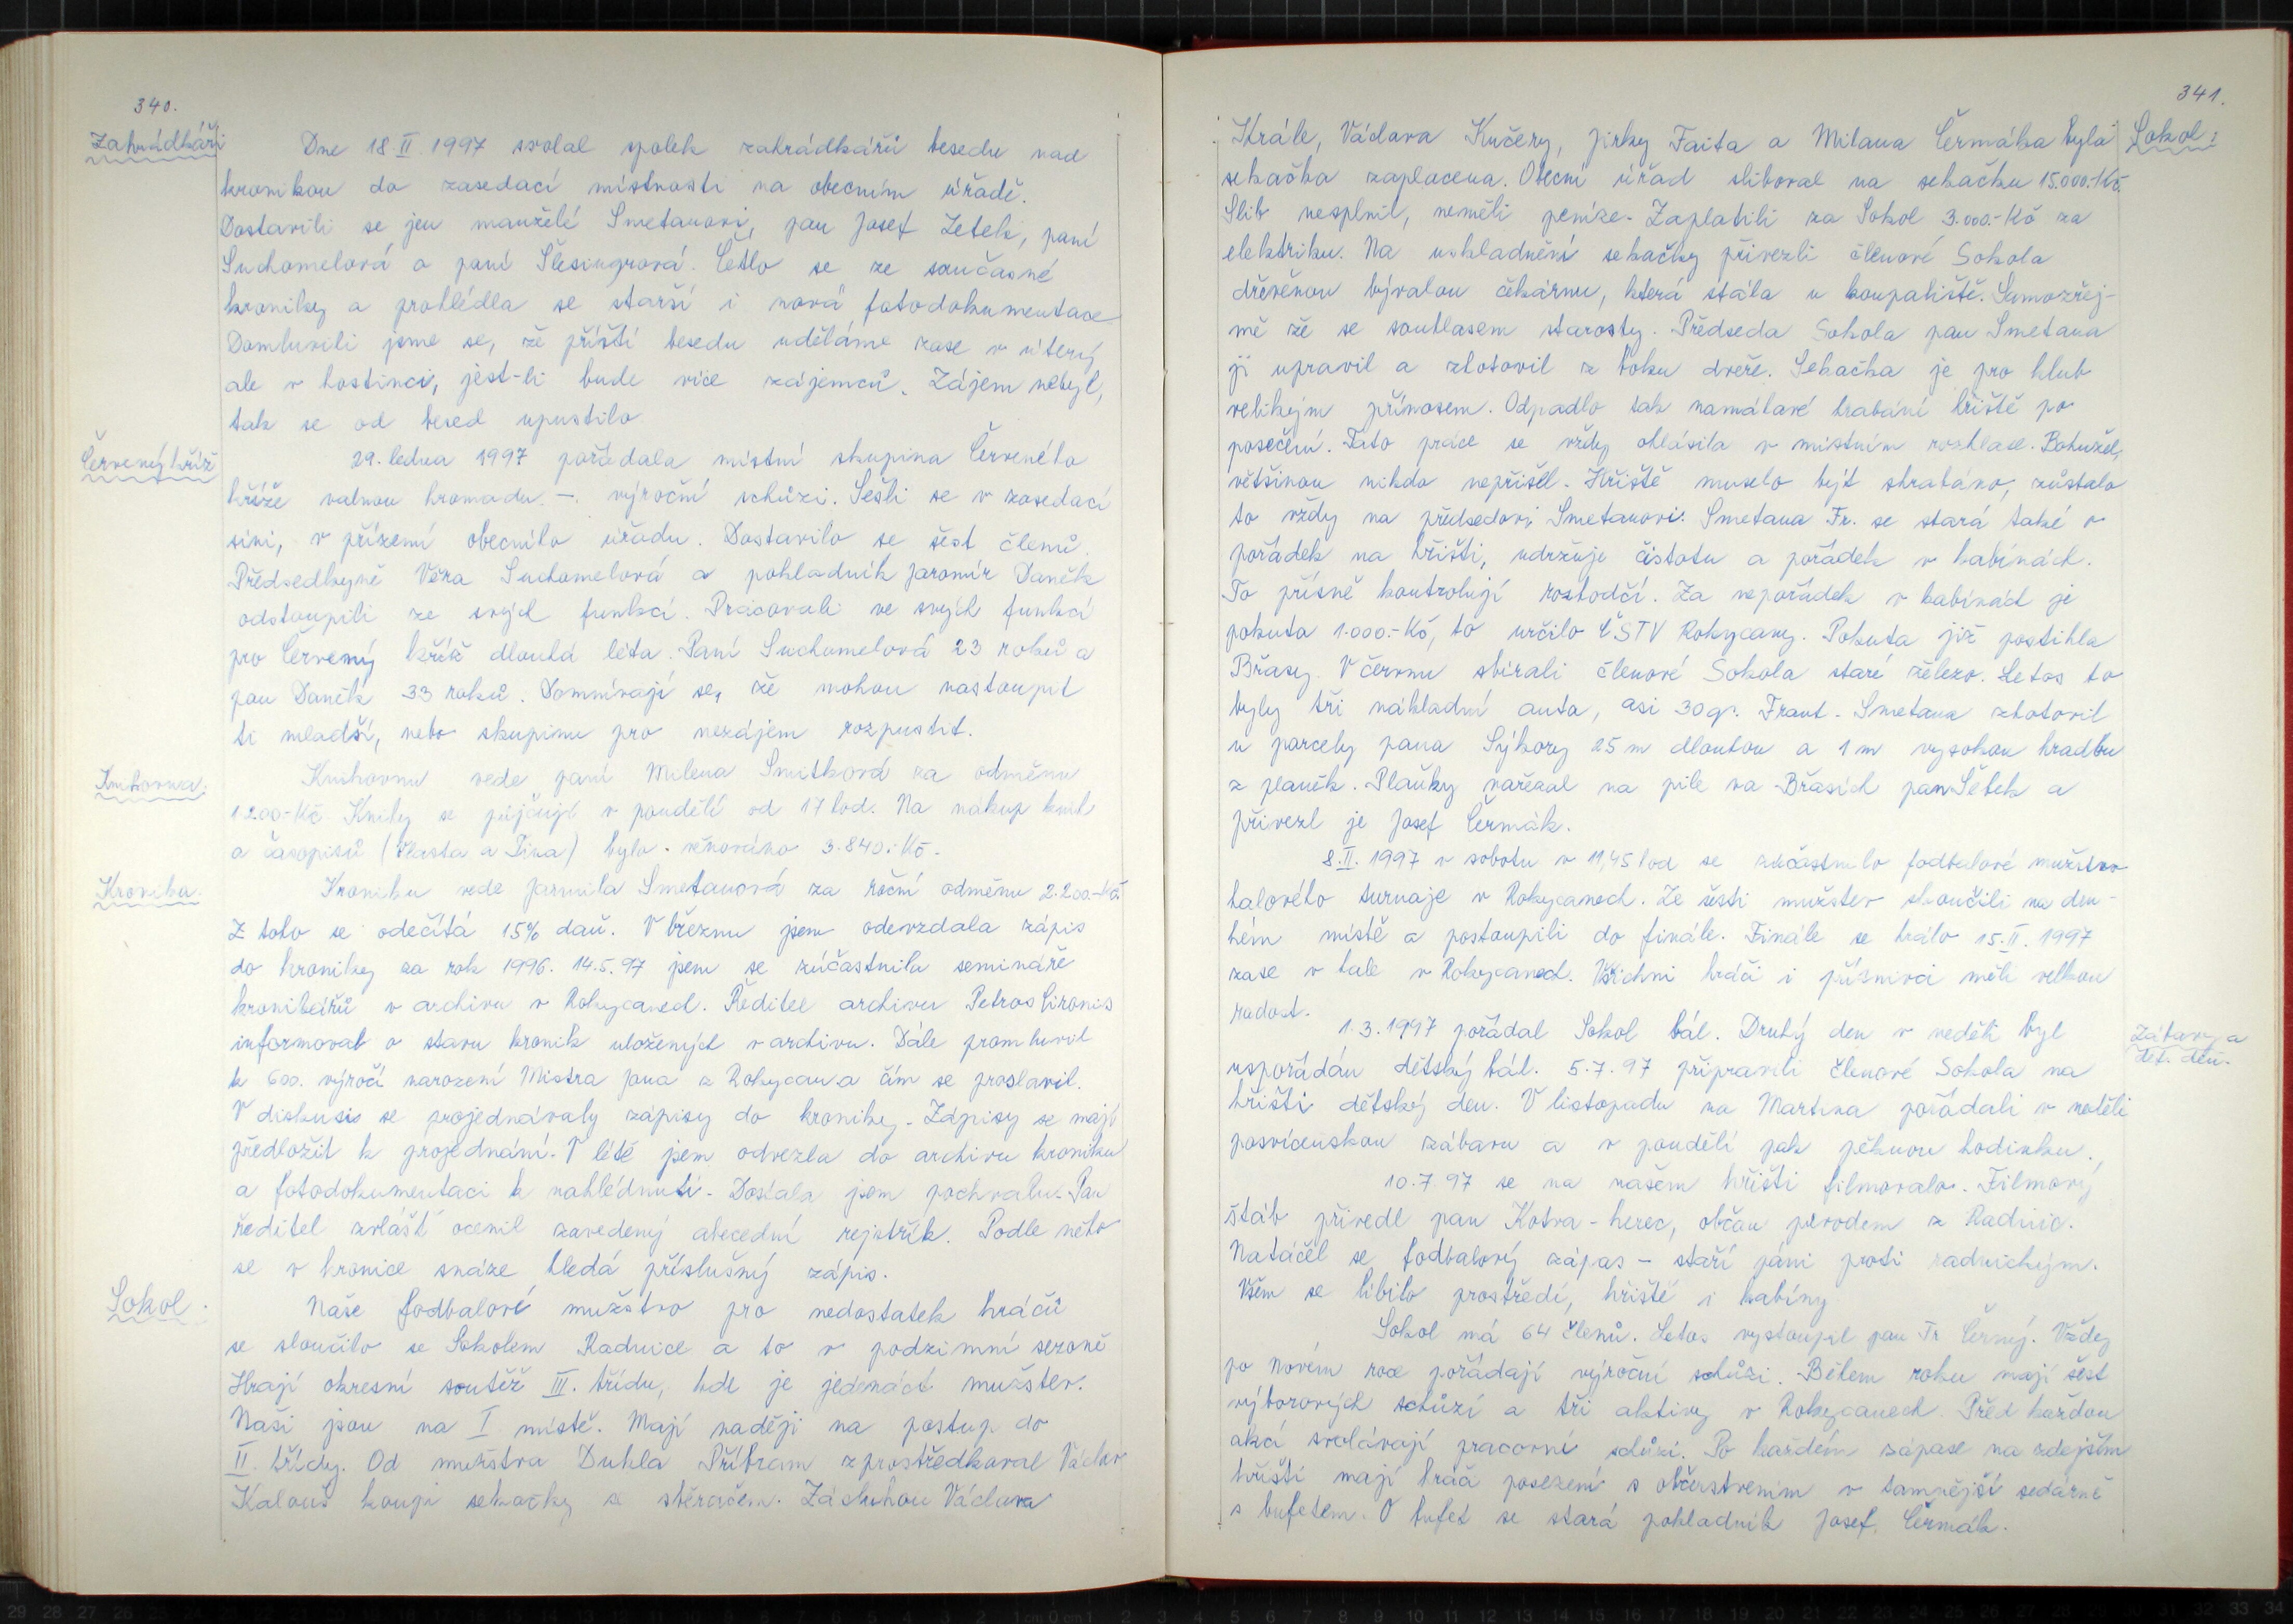 340.
Zahrádkáři
Dne 18.II.1997 svolal spolek zahrádkářů besedu nad
kronikou do zasedací místnosti na obecním úřadě.
Dostavili se jen manželé Smetanovi, pan Josef Zetek, paní
Suchomelová a paní Šlesingrová. Četlo se ze současné
kroniky a prohlédla se starší i nová fotodokumentace
Domluvili jsme se, že příští besedu uděláme zase v úterý
ale v hostinci, jest-li bude více zájemců. Zájem nebyl,
tak se od besed upustilo
Červený kříž
29. ledna 1997 pořádala místní skupina Červeného
kříže valnou hromadu - výroční schůzi. Sešli se v zasedací
síni, v přízemí obecního úřadu. Dostavilo se šest členů.
Předsedkyně Věra Suchomelová a pokladník Jaromír Daněk
odstoupili ze svých funkcí. Pracovali ve svých funkcí
pro Červený kříž dlouhá léta. Paní Suchomelová 23 roků a
pan Daněk 33 roků. Domnívají se, že mohou nastoupit
ti mladší, nebo skupinu pro nezájem rozpustit.
Knihovna.
Knihovnu vede paní Milena Smitková za odměnu
1200-Kč Knihy se půjčují v pondělí od 17 hod. Na nákup knih
a časopisů (Vlasta a Tina) bylo věnováno 3.840.-Kč.
Kronika.
Kroniku vede Jarmila Smetanová za roční odměnu 2.200.-Kč.
Z toho se odečítá 15% daň. V březnu jsem odevzdala zápis
do kroniky za rok 1996. 14.5.97 jsem se zúčastnila semináře
kronikářů v archivu v Rokycanech. Ředitel archivu Petros Cironis
informoval o stavu kronik uložených v archivu. Dále promluvil
k 600. výročí narození Mistra Jana z Rokycan a čím se proslavil.
V diskusis se projednávaly zápisy do kroniky. Zápisy se mají
předložit k projednání. V létě jsem odvezla do archivu kroniku
a fotodokumentaci k nahlédnutí. Dostala jsem pochvalu. Pan
ředitel zvlášť ocenil zavedený abecední rejstřík. Podle něho
se v kronice snáze hledá příslušný zápis.
Sokol.
Naše fodbalové mužstvo pro nedostatek hráčů
se sloučilo se Sokolem Radnice a to v podzimní sezoně
Hrají okresní soutěž III. třídu, kde je jedenáct mužstev.
Naši jsou na I místě. Mají naději na postup do
II. třídy. Od mužstva Dukla Příbram zprostředkoval Václav
Kalous koupi sekačky se sběračem. Zásluhou Václava
341.
Sokol:
Krále, Václava Kučery, Jirky Faita a Milana Čermáka byla
sekačka zaplacena. Obecní úřad sliboval na sekačku 15.000.-Kč.
Slib nesplnil, neměli peníze. Zaplatili za Sokol 3.000.-Kč za
elektriku. Na uskladnění sekačky přivezli členové Sokola
dřevěnou bývalou čekárnu, která stála u koupaliště. Samozřej-
mě že se souhlasem starosty. Předseda Sokola pan Smetana
ji upravil a zhotovil z boku dveře. Sekačka je pro klub
velikým přínosem. Odpadlo tak namáhavé hrabání hřiště po
posečení. Tato práce se vždy ohlásila v místním rozhlase. Bohužel,
většinou nikdo nepřišel. Hřiště muselo být shrabáno, zůstalo
to vždy na předsedovi Smetanovi. Smetana Fr. se stará také o
pořádek na hřišti, udržuje čistotu a pořádek v kabinách.
To přísně kontrolují rozhodčí. Za nepořádek v kabinách je
pokuta 1.000.-Kč, to určilo ČSTV Rokycany. Pokuta již postihla
Břasy. V červnu sbírali členové Sokola staré železo. Letos to
byly tři nákladní auta, asi 30 q. Frant. Smetana zhotovil
u parcely pana Sýkory 25 m dlouhou a 1 m vysokou hradbu
z planěk. Plaňky nařezal na pile na Břasích pan Šetek a
přivezl je Josef Čermák.
8.II.1997 v sobotu v 11,45 hod se zúčastnilo fodbalové mužstvo
halového turnaje v Rokycanech. Ze šesti mužstev skončili na dru-
hém místě a postoupili do finále. Finále se hrálo 15.II.1997
zase v hale v Rokycanech. Všichni hráči i příznivci měli velkou
radost.
Zábavy a
dět. den.
1.3.1997 pořádal Sokol bál. Druhý den v neděli byl
uspořádán dětský bál. 5.7.97 připravili členové Sokola na
hřišti dětský den. V listopadu na Martina pořádali v neděli
posvícenskou zábavu a v pondělí pak pěknou hodinku.
10.7.97 se na našem hřišti filmovalo. Filmový
štáb přivedl pan Kotva - herec, občan původem z Radnic.
Natáčel se fodbalový zápas - staří páni proti radnickým.
Všem se líbilo prostředí, hřiště i kabiny
Sokol má 64 členů. Letos vystoupil pan Fr Černý. Vždy
po Novém roce pořádají výroční schůzi. Během roku mají šest
výborových schůzí a tři aktivy v Rokycanech. Před každou
akcí svolávají pracovní schůzi. Po každém zápase na zdejším
hřišti mají hráči posezení s občerstvením v tampější sedárně
s bufetem. O bufet se stará pokladník Josef Čermák.